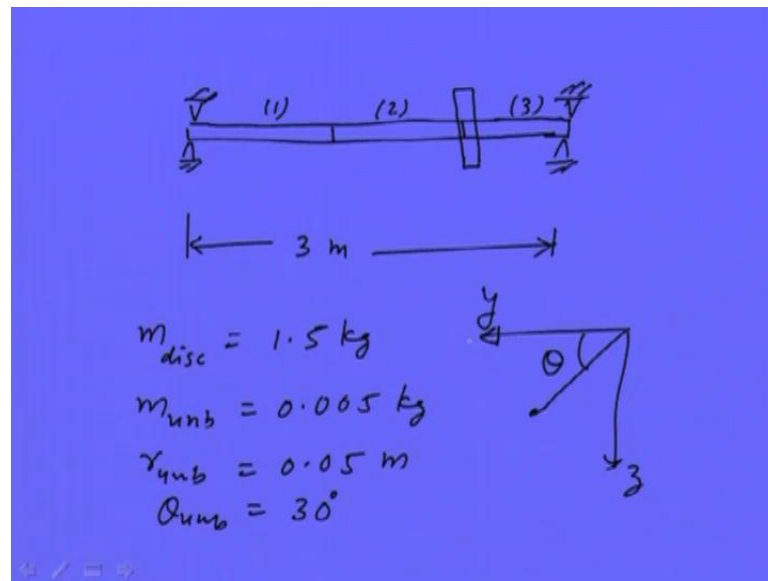 (1) (2) (3)
3 m
m_disc = 1.5 kg
m_unb = 0.005 kg
r_unb = 0.05 m
θ_unb = 30°
y
θ
z